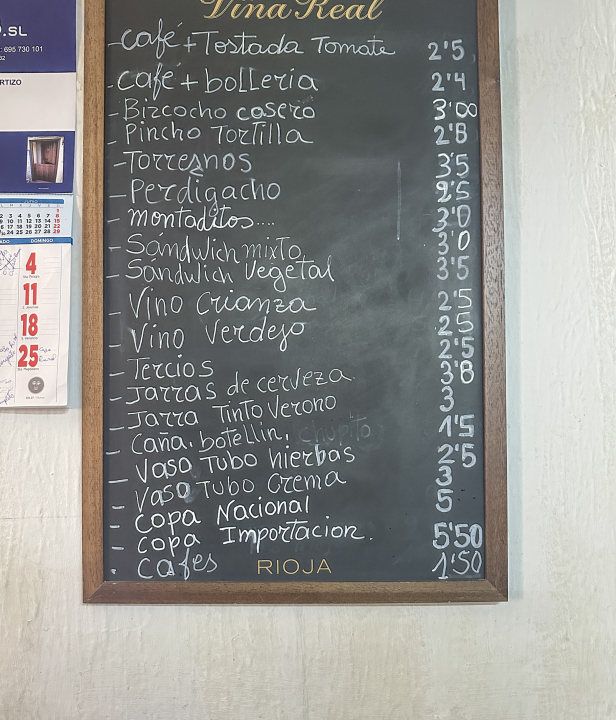 .SL
: 695 730 101
RTIZO
JUNIO
DOMINGO
4
11
18
25
Viña Real
- café + Tostada Tomate 2'5
- café + bolleria 2'4
- Bizcocho casero 3'00
- Pincho Tortilla 2'8
- Torresnos 3'5
- Perdigacho 2'5
- montaditos.... 3'0
- Sandwich mixto 3'0
- Sandwich Vegetal 3'5
- Vino Crianza 2'5
- Vino Verdejo 2'5
- Tercios 2'5
- Jarras de cerveza 3'8
- Jarra Tinto Verono 3
- Caña, botellin, chupito 1'5
- Vaso Tubo hierbas 2'5
- Vaso Tubo Crema 3
- Copa Nacional 5
- Copa Importacion. 5'50
- cafes 1'50
RIOJA